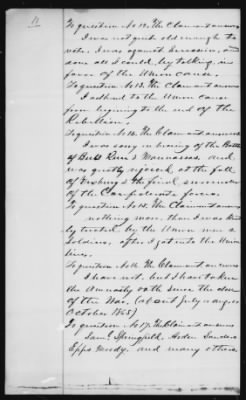 11
To question No 12. The Claimant answers
I was not quit old enough to
vote. I was against Secession, and
done all I could, by talking, in
favor of the Union cause.
To question No 13. The Claimant answers
I adhered to the Union cause
from beginning to the end of the
Rebellion.
To question No 14. The Claimant answers
I was sorry in hearing of the Battle
of Bull Run & Mannassas, and
was greatly rejoiced at the fall
of Vixburg & the final surrender
of the Confederate forces.
To question No 15. The Claimant answers
nothing more, than I was kind
ly treated by the Union men &
Soldiers, after I got into the Union
lines.
To question No 16. The Claimant answers
I have not, but I have taken
the Amnesty oath since the close
of the War, (about July August
October 1865)
To question No 17. The Claimant answers
Saml Springfield, Sanders
Epps Moody, and many others,